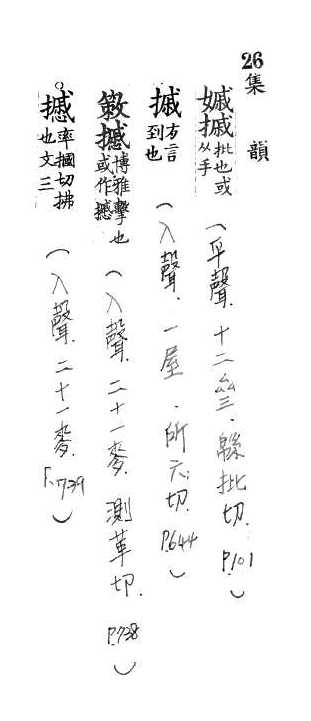 26集韻
摵批也或从手（平聲．十二齊三．緜批切．P.101）
摵方言到也（入聲．一屋．所六切．P.644）
撼博雅擊也或作撼（入聲．二十一麥．測革切．P.738）
撼率摑切拂也文三（入聲．二十一麥．P.739）